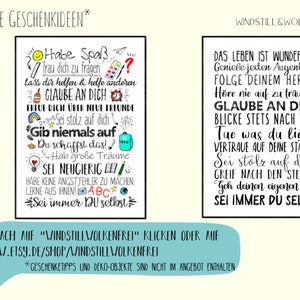 E GESCHENKIDEEN*
WINDSTILL&WOL
Habe Spaß
Trau dich zu fragen
Lass dir helfen & helfe anderen
GLAUBE AN DICH
FREUE DICH ÜBER NEUE FREUNDE
Sei stolz auf dich
Gib niemals auf
Du schaffst das!
Hab große Träume
SEI NEUGIERIG
HABE KEINE ANGST, FEHLER ZU MACHEN:
LERNE AUS IHNEN! ABC
Sei immer DU selbst
DAS LEBEN IST WUNDER
Genieße jeden Augen
FOLGE DEINEM HER
Höre nie auf zu trä
GLAUBE AN D
BLICKE STETS NACH
Tue was du lie
VERTRAUE AUF DEINE STÄ
Sei stolz auf d
GREIF NACH DEN STE
Geh deinen eigenen
SEI IMMER DU SEL
ACH AUF "WINDSTILLWOLKENFREI" KLICKEN ODER AUF
W.ETSY.DE/SHOP/WINDSTILLWOLKENFREI
*GESCHENKETIPPS UND DEKO-OBJEKTE SIND NICHT IM ANGEBOT ENTHALTEN